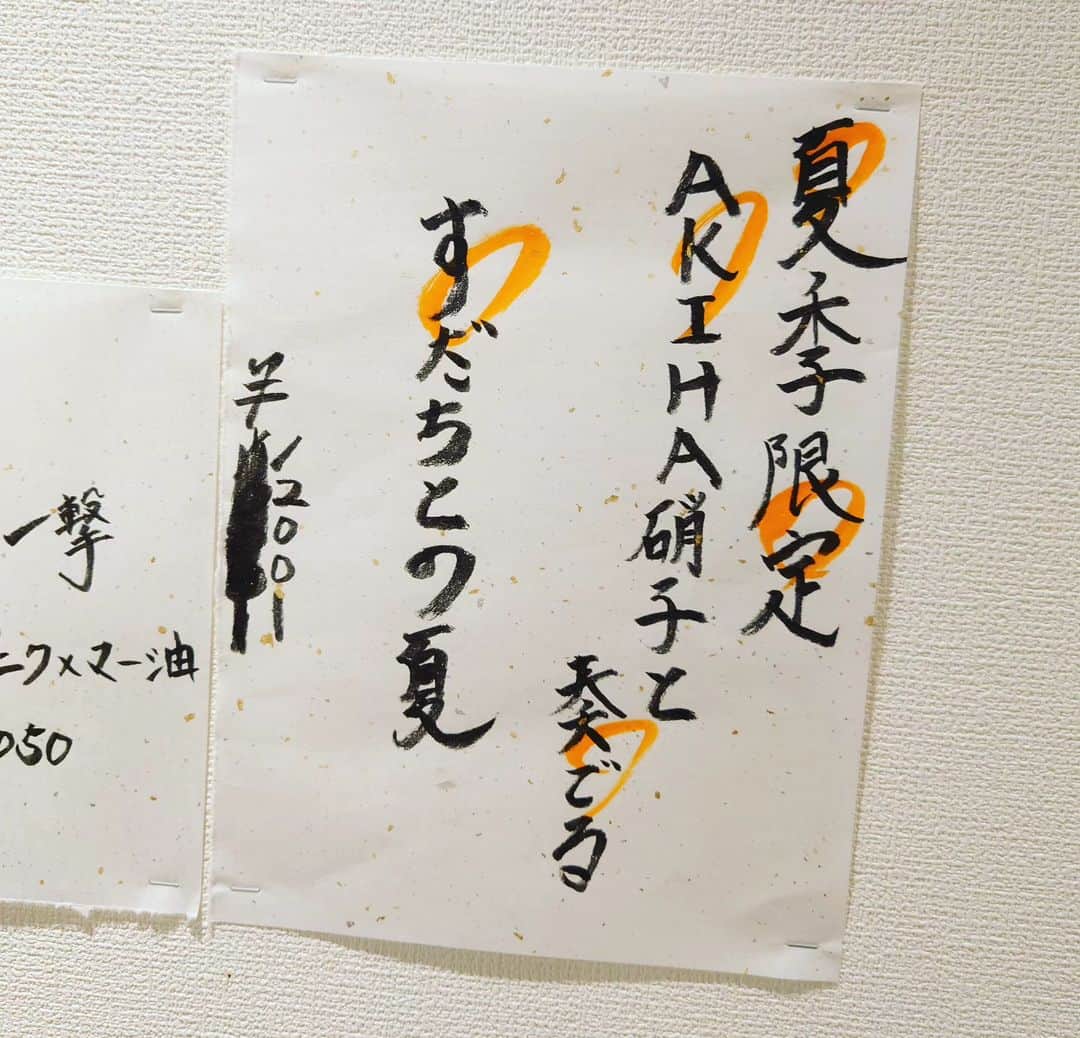 夏季限定
AKIHA硝子と
奏でる
すだちとの夏
¥1200ー
一撃
ニク×マー油
050